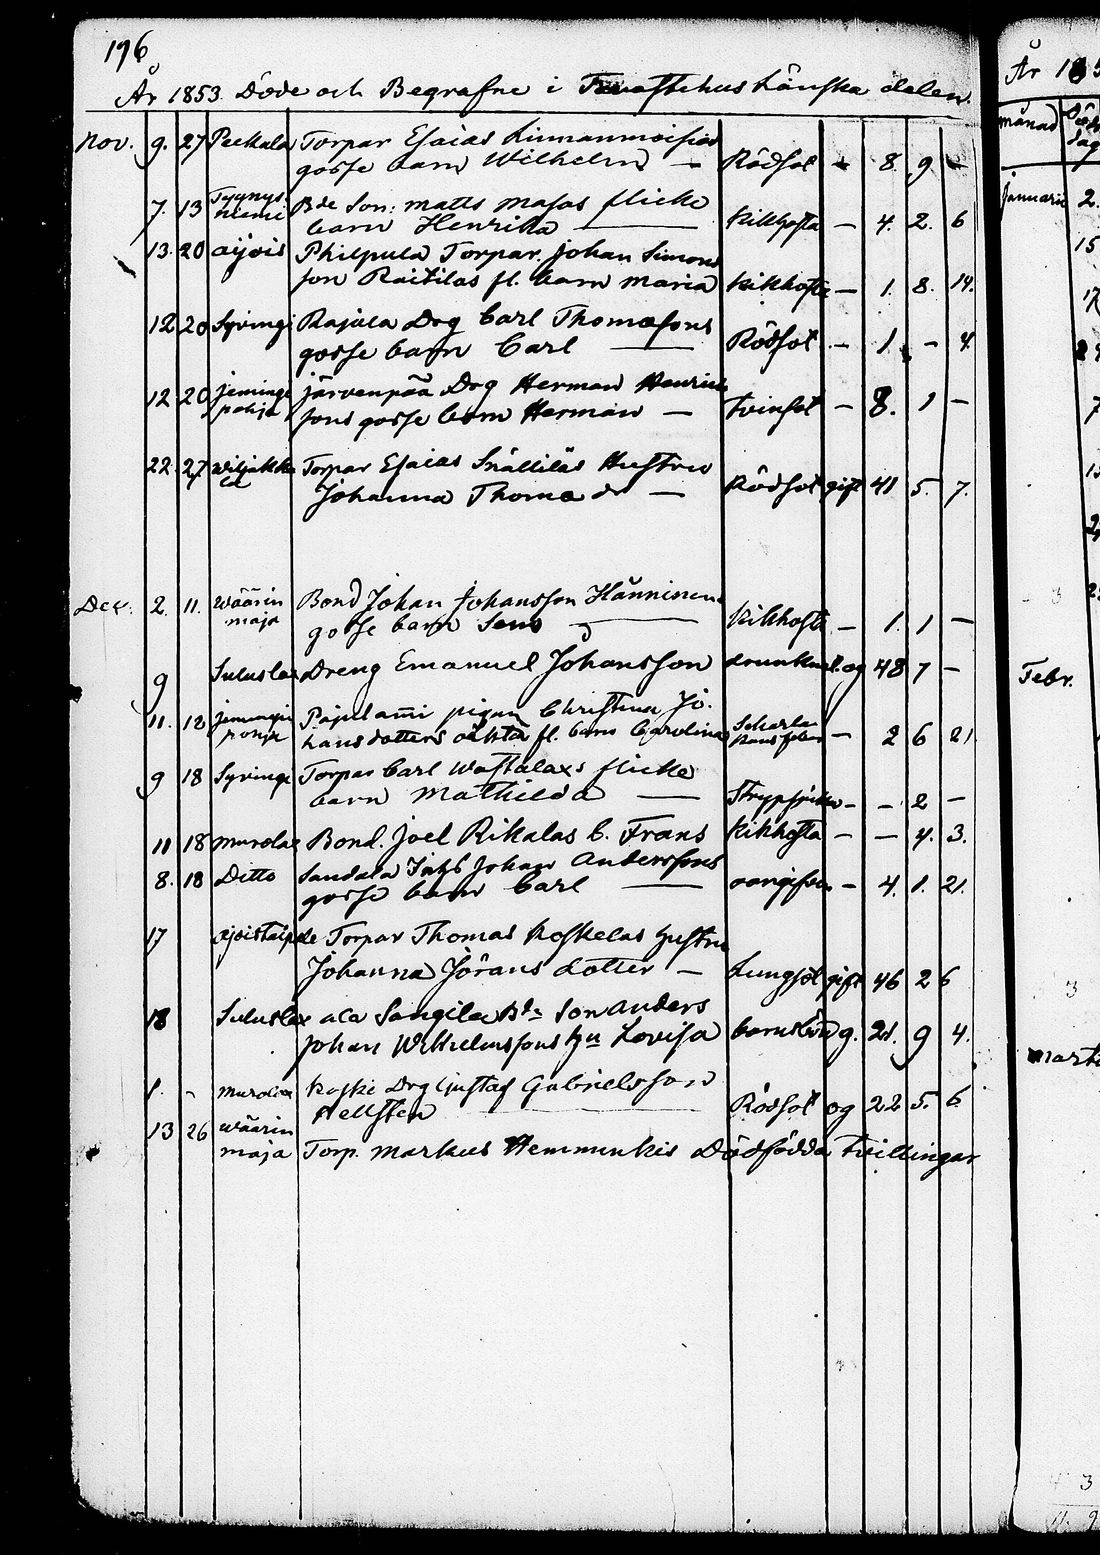 196
År 1853 Döde och Begrafne i Tavastehus Länska delen
Nov. 9. 27 Peckala Torpar Esaias
gosse barn Wilhelm — Rödsot - 8. 9 -
7. 13 Tyynys Bde Son: Matts Majas flicke
niemi barn Henrika — Kikhosta - 4. 2. 6
13. 20 Aijois Philpula Torpar Johan Simons
son Raitilas fl. barn Maria Kikhosta - 1. 8. 14.
12 20 Syringi Rajala Drg Carl Thomasons
gosse barn Carl — Rödsot - 1 - 4.
12 20 Jemingi Järvenpää Drg Herman Henrik
pohja sons gosse barn Herman — Tvinsot - 8. 1 -
22. 27 Torpar Esaias Snälliläs Hustru
la Johanna Thoma dr — Rödsot gift 41 5. 7.
Dec. 2. 11. Wäärin Bond Johan Johansson Hänninens
maja gosse barn — Kikhosta - 1. 1 -
9 Suluslax Dreng Emanuel Johansson og 48 7 -
11. 18 pigan Christina Jo.
pohja hansdotters oäkta fl. barn Carolina Scharla - 2 6 21
9 18 Syringi Torpar Carl Wastalaxs flicke
barn Mathilda — - - 2 -
11 18 Murolax Bond. Joel Rikalas b. Frans Kikhosta - - 4. 3.
8. 18 Ditto Sandala Johan Anderssons
gosse barn Carl — oangifven - 4. 1. 21.
17 Torpar Thomas Koskelas hustru
Johanna Jörans dotter — Lungsot gift 46 2 6
18 Suluslax ala Sangila Bde Son Anders
Johan Wilhelmssons hu Lovisa barnsbörd g. 21. 9 4.
1. - Murolax Koski Drg Gustaf Gabrielsson
Hellsten — Rödsot og 22 5. 6
13 26 Wäärin
maja Torp. Markus Hemminkis Dödfödda Tvillingar
År 185
månad Död
dag
Januarii 2.
15
17
7
Febr.
Marti
3